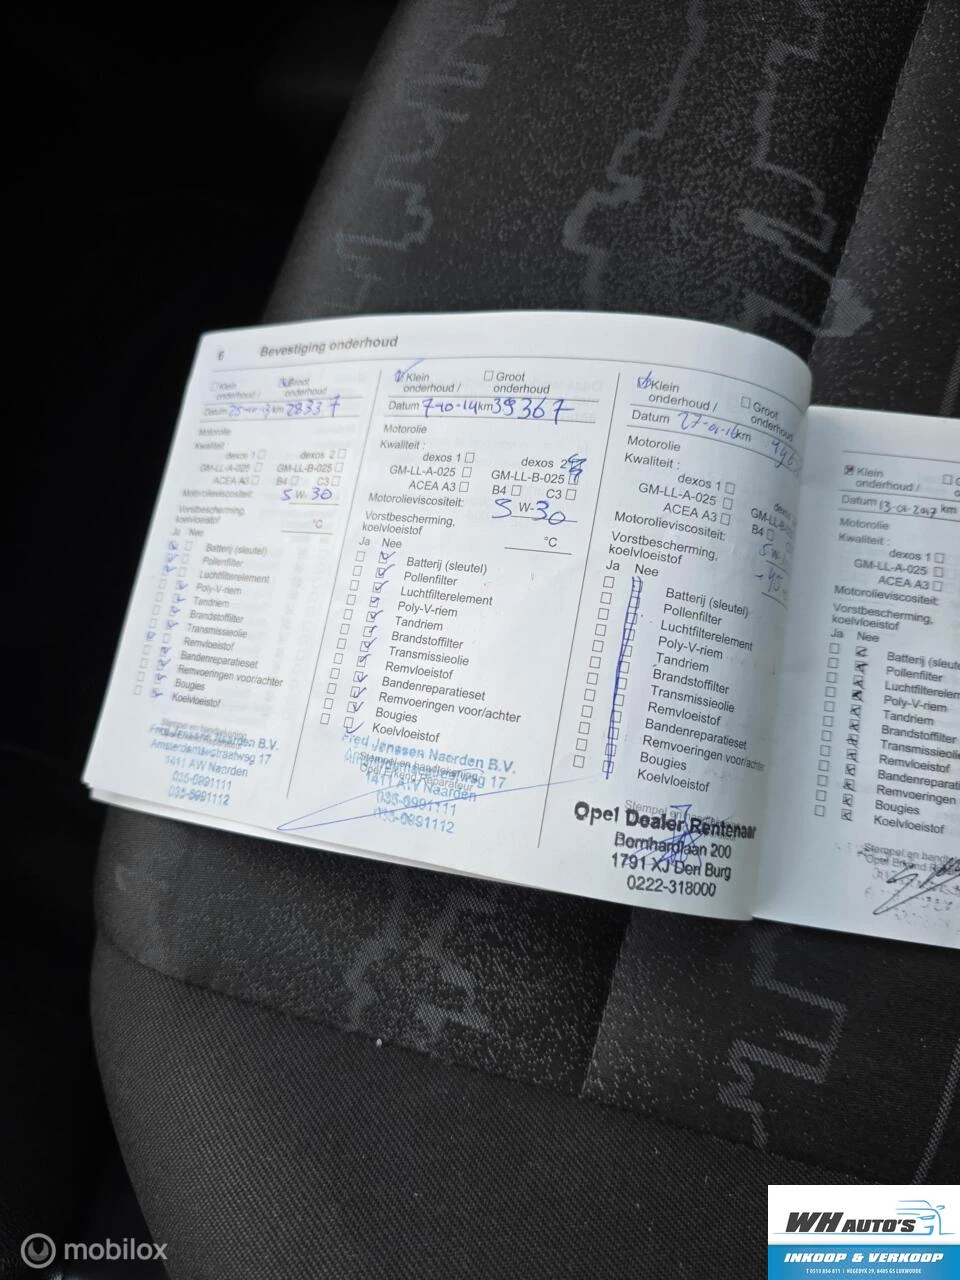 6 Bevestiging onderhoud
Klein onderhoud /
Groot onderhoud
Datum 25-10-13 km 28337
Motorolie
Kwaliteit :
dexos 1 dexos 2
GM-LL-A-025 GM-LL-B-025
ACEA A3 B4 C3
Motorolieviscositeit: 5 W- 30
Vorstbescherming, koelvloeistof °C
Ja Nee
Batterij (sleutel)
Pollenfilter
Luchtfilterelement
Poly-V-riem
Tandriem
Brandstoffilter
Transmissieolie
Remvloeistof
Bandenreparatieset
Remvoeringen voor/achter
Bougies
Koelvloeistof
Amsterdamsestraatweg 17
1411 AW Naarden
035-6991111
035-6991112
Klein onderhoud /
Groot onderhoud
Datum 7-10-14 km 39367
Motorolie
Kwaliteit :
dexos 1 dexos 2
GM-LL-A-025 GM-LL-B-025
ACEA A3 B4 C3
Motorolieviscositeit: 5 W- 30
Vorstbescherming, koelvloeistof °C
Ja Nee
Batterij (sleutel)
Pollenfilter
Luchtfilterelement
Poly-V-riem
Tandriem
Brandstoffilter
Transmissieolie
Remvloeistof
Bandenreparatieset
Remvoeringen voor/achter
Bougies
Koelvloeistof
Fred Jenssen Naarden B.V.
Stempel en handtekening
Opel Erkend Reparateur
1411 AW Naarden
035-6991111
035-6991112
Klein onderhoud /
Groot onderhoud
Datum 27-01-16 km
Motorolie
Kwaliteit :
dexos 1
GM-LL-A-025
ACEA A3 B4
Motorolieviscositeit: 5 W-
Vorstbescherming, koelvloeistof
Ja Nee
Batterij (sleutel)
Pollenfilter
Luchtfilterelement
Poly-V-riem
Tandriem
Brandstoffilter
Transmissieolie
Remvloeistof
Bandenreparatieset
Remvoeringen voor/achter
Bougies
Koelvloeistof
Opel Dealer Rentenaar
Bernhardlaan 200
1791 XJ Den Burg
0222-318000
Klein onderhoud /
Datum 13-01-2017 km
Motorolie
Kwaliteit :
dexos 1
GM-LL-A-025
ACEA A3
Motorolieviscositeit:
Vorstbescherming, koelvloeistof
Ja Nee
Batterij (sleute
Pollenfilter
Luchtfilterelem
Poly-V-riem
Tandriem
Brandstoffilter
Transmissieolie
Remvloeistof
Bandenrepara
Remvoeringen
Bougies
Koelvloeistof
mobilox
WH AUTO'S
INKOOP & VERKOOP
T 0513 856 811 | HEGEDYK 29, 8405 GS LUXWOUDE